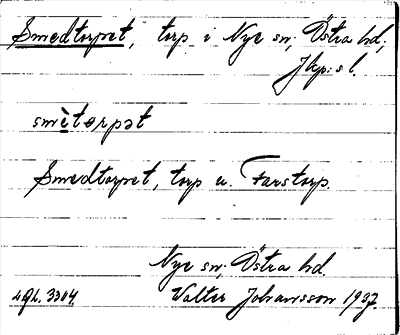 Smedtorpet, torp i Nye sn, Östra hd,
Jkp:s l.
smètɵrpət
Smedtorpet, torp u. Farstorp.
Nye sn, Östra hd.
Valter Johansson 1937.